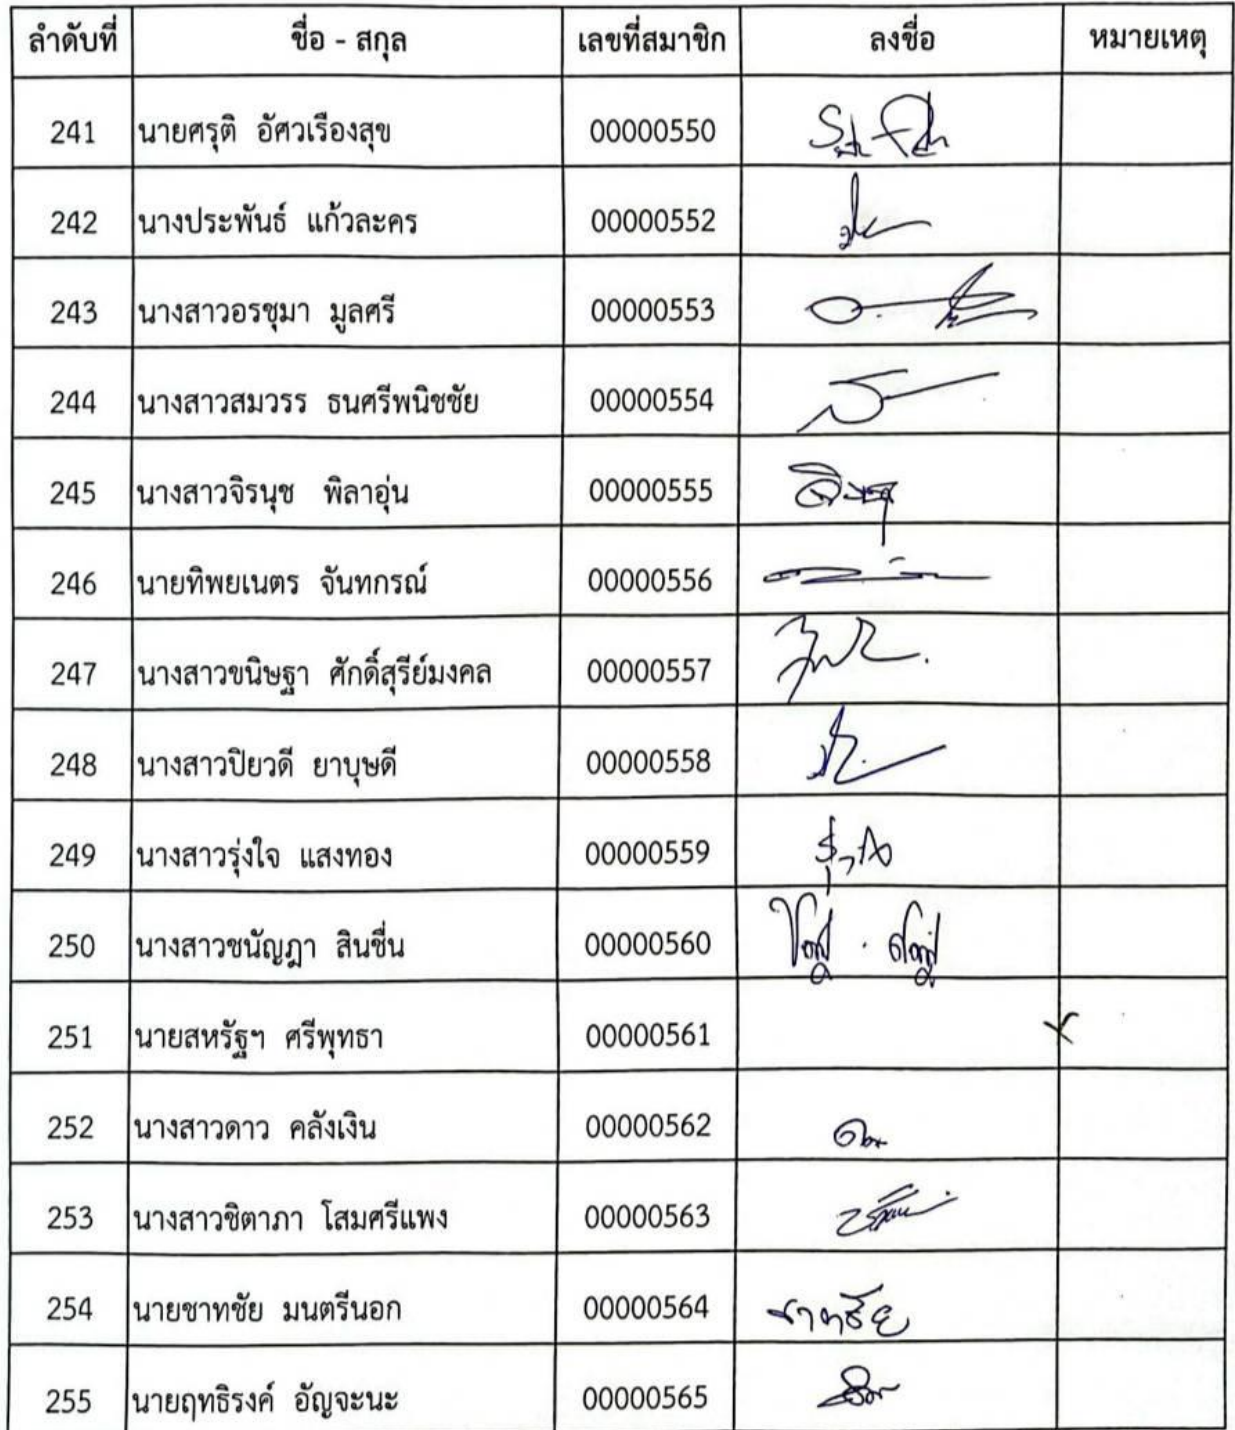 ลำดับที่ ชื่อ - สกุล เลขที่สมาชิก ลงชื่อ หมายเหตุ
241 นายศรุติ อัศวเรืองสุข 00000550
242 นางประพันธ์ แก้วละคร 00000552
243 นางสาวอรชุมา มูลศรี 00000553
244 นางสาวสมวรร ธนศรีพนิชชัย 00000554
245 นางสาวจิรนุช พิลาอุ่น 00000555
246 นายทิพยเนตร จันทกรณ์ 00000556
247 นางสาวขนิษฐา ศักดิ์สุรีย์มงคล 00000557
248 นางสาวปิยวดี ยาบุษดี 00000558
249 นางสาวรุ่งใจ แสงทอง 00000559
250 นางสาวชนัญฎา สินชื่น 00000560
251 นายสหรัฐฯ ศรีพุทธา 00000561
252 นางสาวดาว คลังเงิน 00000562
253 นางสาวชิตาภา โสมศรีแพง 00000563
254 นายชาทชัย มนตรีนอก 00000564 ชาทชัย
255 นายฤทธิรงค์ อัญจะนะ 00000565